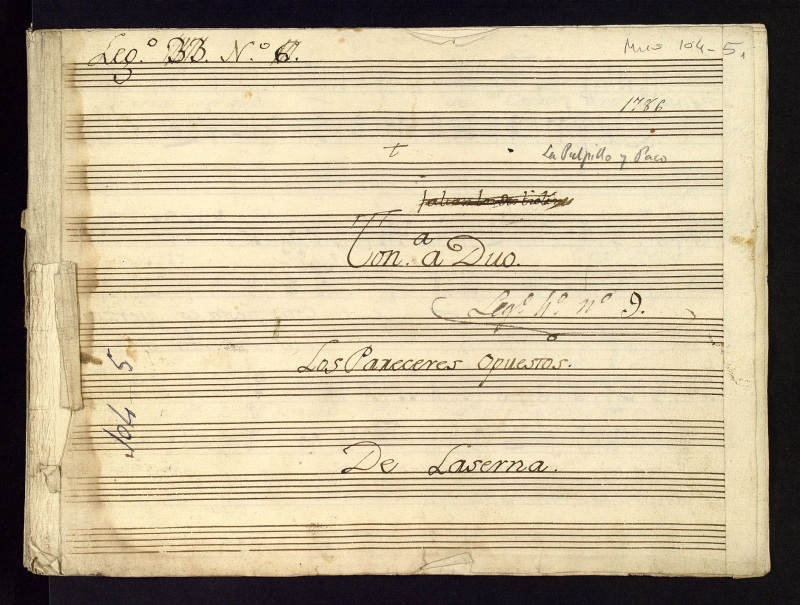 Leg.º BB. N.º 6.
Mus 104-5,
1786
La Pulpillo y Paco
Ton.ª a Duo.
Leg.º 4.º nº 9.
Los Pareceres opuestos.
104 5
De Laserna.